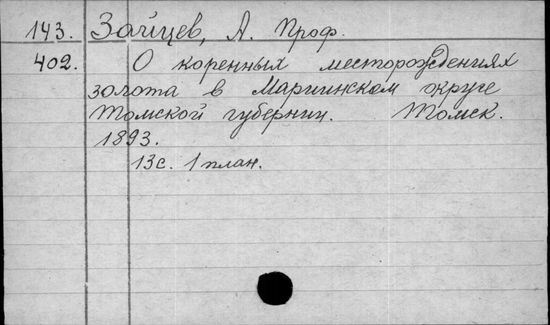 143. Зайцев, А. Проф.
402. О коренных месторождениях
золота в Мариинском округе
Томской губернии. Томск.
1893.
13с. 1 план.